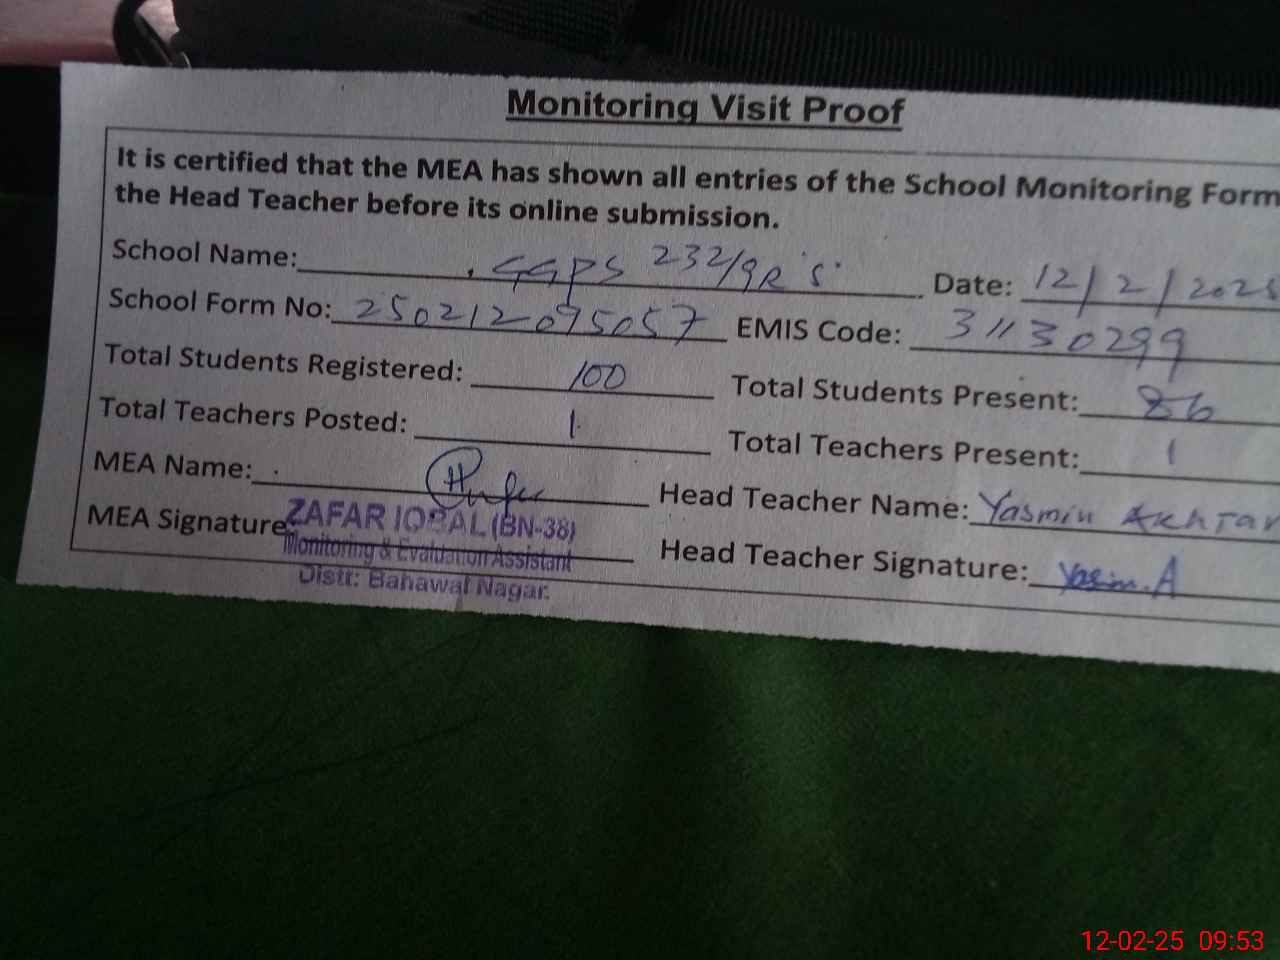 Monitoring Visit Proof
It is certified that the MEA has shown all entries of the School Monitoring Form
the Head Teacher before its online submission.
School Name: GGPS 232/9R 'S' Date: 12/2/2025
School Form No: 250212095057 EMIS Code: 31130299
Total Students Registered: 100 Total Students Present: 86
Total Teachers Posted: 1 Total Teachers Present: 1
MEA Name: Head Teacher Name: Yasmin Akhtar
MEA Signature: Head Teacher Signature: Yasmin.A
ZAFAR IQBAL (BN-38)
Monitoring & Evaluation Assistant
Distt: Bahawal Nagar.
12-02-25 09:53